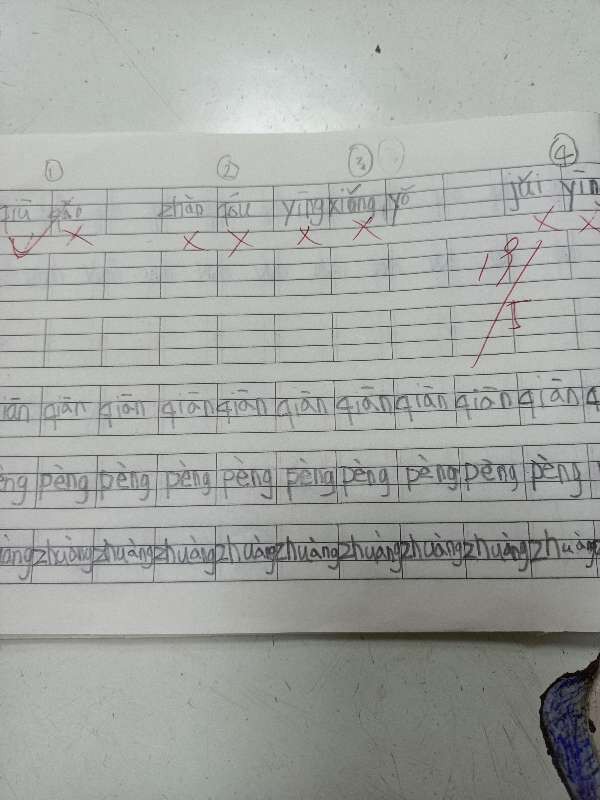 ① ② ③ ④
yīng xiǎng yǒ jǔi yīn
iān qiān qiān qiān qiān qiān qiān qiān qiān qiān
èng pèng pèng pèng pèng pèng pèng pèng pèng pèng
àng zhuàng zhuàng zhuàng zhuàng zhuàng zhuàng zhuàng zhuàng zhuàng